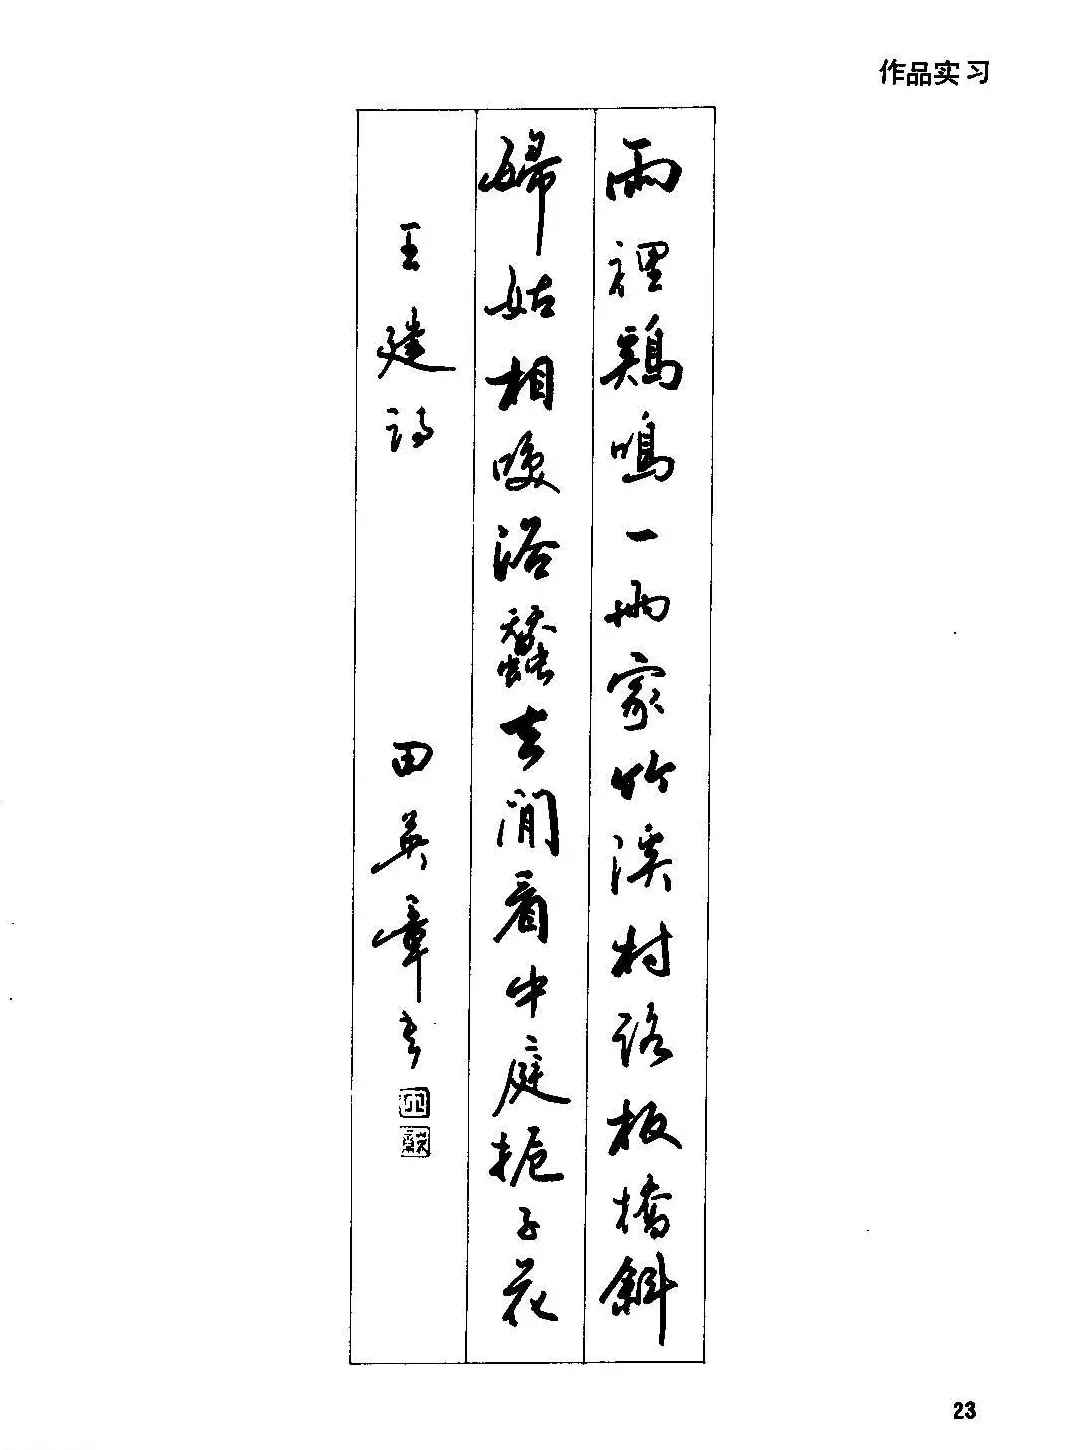 作品实习
雨裡鷄鳴一兩家竹溪村路板橋斜
婦姑相唤浴蠶去閒看中庭栀子花
王建诗
田英章书
23